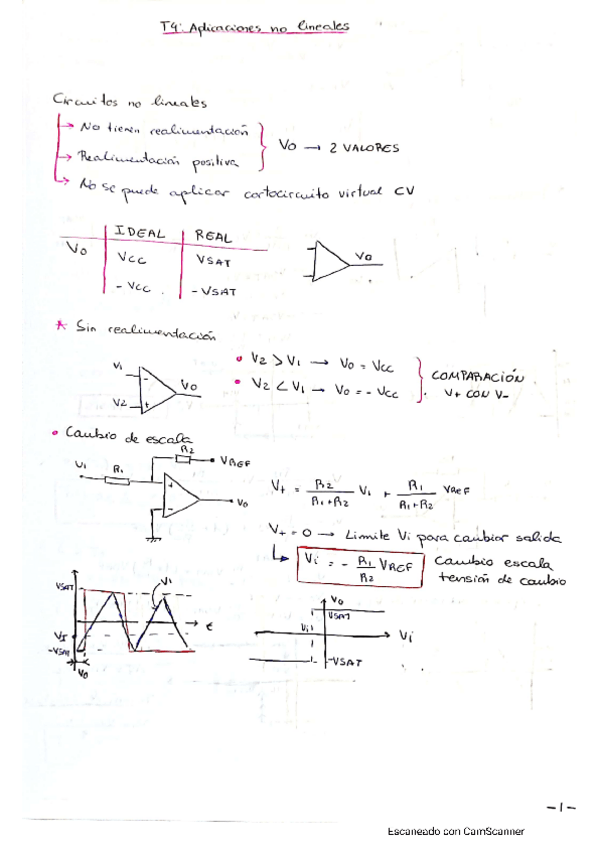 T4: Aplicaciones no lineales
Circuitos no lineales
→ No tienen realimentación
→ Realimentación positiva
VO → 2 VALORES
→ No se puede aplicar cortocircuito virtual CV
IDEAL REAL
VO VCC VSAT
-VCC. -VSAT
VO
* Sin realimentación
V1 - VO
V2 +
• V2 > V1 → VO = VCC
• V2 < V1 → VO = - VCC
COMPARACIÓN
V+ CON V-
• Cambio de escala
R2
VREF
Vi R1
+ - VO
V+ = R2/(R1+R2) Vi + R1/(R1+R2) VREF
V+ = 0 → Limite Vi para cambiar salida
↳ Vi = - R1/R2 VREF
Cambio escala
tensión de cambio
VSAT Vi
t
VI
-VSAT
VO
VO
VSAT
Vi Vi
-VSAT
-1-
Escaneado con CamScanner